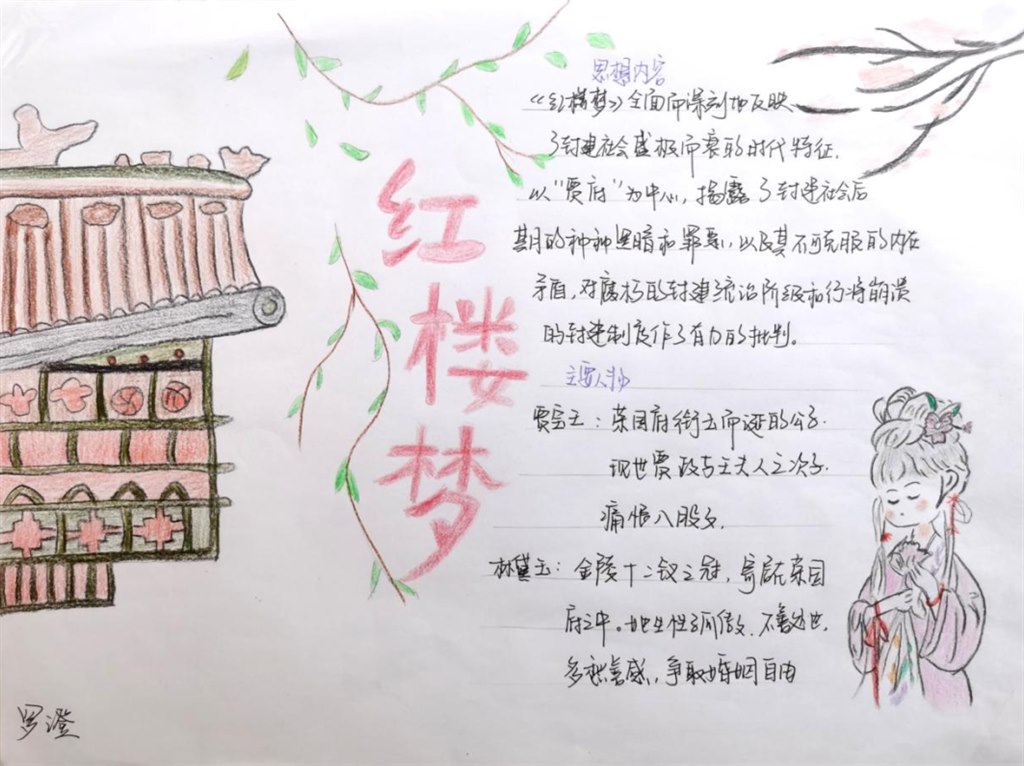 红楼梦
思想内容
《红楼梦》全面而深刻地反映
了封建社会盛极而衰的时代特征.
以"贾府"为中心，揭露了封建社会后
期的种种黑暗和罪恶，以及其不可克服的内在
矛盾，对腐朽的封建统治阶级和行将崩溃
的封建制度作了有力的批判。
主要人物
贾宝玉：荣国府衔玉而诞的公子.
现世贾政与王夫人之次子.
痛恨八股文.
林黛玉：金陵十二钗之冠，寄居在荣国
府之中。她生性孤傲.不善处世.
多愁善感，争取婚姻自由
罗澄